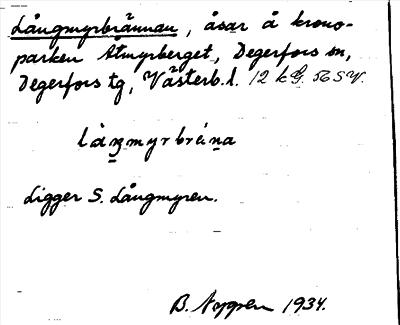 Långmyrbrännan, åsar å krono-
parken Åtmyrberget, Degerfors sn,
Degerfors tg, Västerb. l. 12 kG. 56 SV.
làŋmyrbrä́na
Ligger S. Långmyren.
B. 1934.